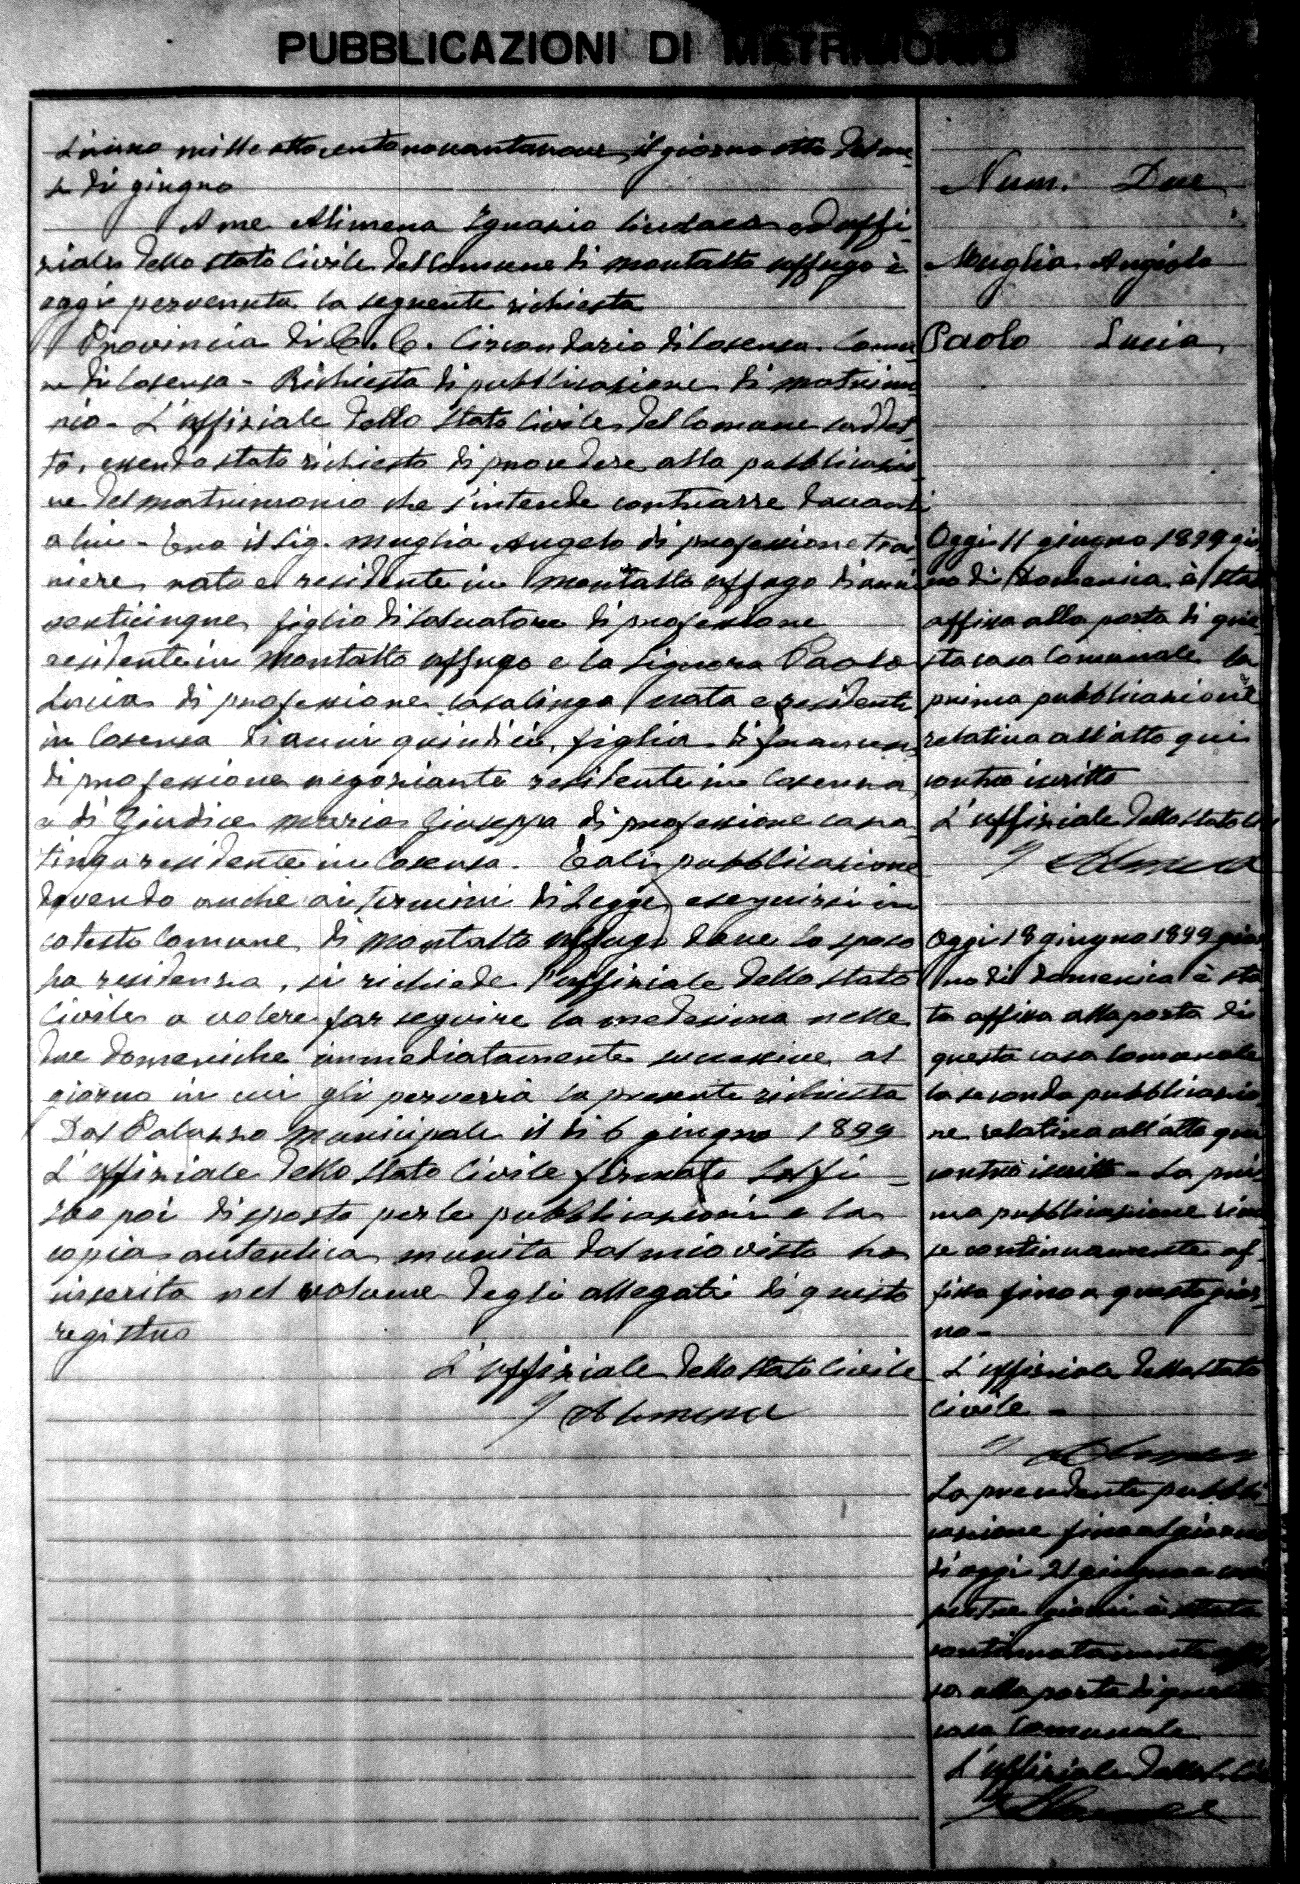 PUBBLICAZIONI DI MATRIMONIO
L'anno mille ottocentonovantanove, il giorno otto del me
se di giugno
A me Alimena Ignazio Sindaco ed uffi-
ziale dello stato Civile del Comune di Montalto Uffugo è
oggi pervenuta la seguente richiesta
Provincia di C. C. Circondario di Cosenza. Comu
ne di Cosenza - Richiesta di pubblicazione di matrimo
nio - L'uffiziale dello Stato Civile del Comune suddet-
to, essendo stato richiesto di provedere alla pubblicazio
ne del matrimonio che s'intende contrarre davanti
a lui - tra il Sig. Muglia Angelo di professione trai
niere nato e residente in Montalto Uffugo di anni
venticinque, figlio di Salvatore di professione
residente in Montalto Uffugo e la Signora Paolo
Lucia di professione casalinga nata e residente
in Cosenza di anni quindici, figlia di
di professione negoziante residente in Cosenza
e di Giudice Maria Giuseppa di professione casa-
linga residente in Cosenza. Tali pubblicazione
dovendo anche ai termini di Legge, eseguirsi in
cotesto Comune di Montalto Uffugo dove lo sposo
ha residenza, si richiede l'uffiziale dello stato
Civile a volere far seguire la medesima nelle
due domeniche immediatamente successive al
giorno in cui gli perverrà la presente richiesta
Dal Palazzo Municipale il dì 6 giugno 1899
L'uffiziale dello Stato Civile firmato
poi disposto per le pubblicazioni e la
copia autentica munita dal mio visto ho
inserita nel volume degli allegati di questo
registro
L'uffiziale dello Stato Civile
I Alimena
Num. Due
Muglia Angiolo
Paolo Lucia
Oggi 11 giugno 1899 gior
no di Domenica è stata
affissa alla porta di que-
sta casa Comunale la
prima pubblicazione
relativa all'atto qui
contro iscritto
L'uffiziale dello Stato Civ
I Alimena
Oggi 18 giugno 1899 gior
no di domenica è sta
ta affissa alla porta di
questa casa Comunale
la seconda pubblicazio
ne relativa all'atto qui
contro iscritto - La pri-
ma pubblicazione rima
se continuamente af-
fissa fino a questo gior
no -
L'uffiziale dello Stato
Civile -
I Alimena
La precedente pubbli
cazione fino al giorno
di oggi 21 giugno e così
per tre giorni è stata
continuatamente affis
sa alla porta di questa
casa Comunale
L'uffiziale dello S. Civ
I Alimena